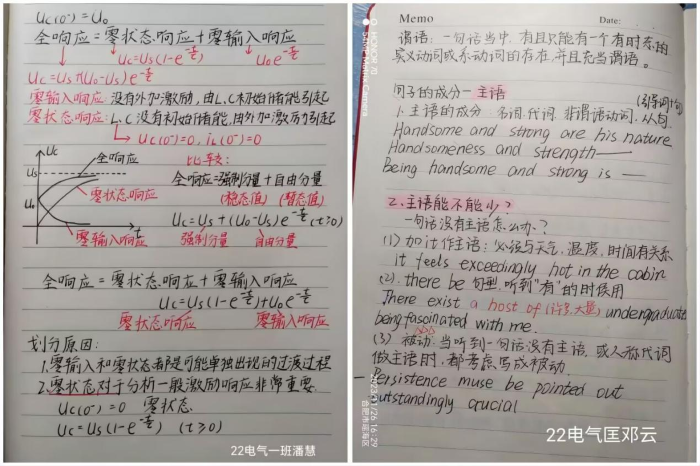 Uc(0⁻)=U₀
全响应=零状态响应+零输入响应
Uc=Us(1-e^-t/τ) U₀e^-t/τ
Uc=Us+(U₀-Us)e^-t/τ
零输入响应:没有外加激励,由L.C初始储能引起
零状态响应:L.C没有初始储能,由外加激励引起
Uc(0⁻)=0, iL(0⁻)=0
Uc
全响应
Us
零状态响应
U₀
零输入响应
t
比较:
全响应=强制分量+自由分量
(稳态值) (暂态值)
Uc=Us+(U₀-Us)e^-t/τ (t≥0)
强制分量 自由分量
全响应=零状态响应+零输入响应
Uc=Us(1-e^-t/τ)+U₀e^-t/τ
零状态响应 零输入响应
划分原因:
1.零输入和零状态都是可能单独出现的过渡过程
2.零状态对于分析一般激励响应非常重要
Uc(0⁻)=0 零状态
Uc=Us(1-e^-t/τ) (t≥0)
22电气一班潘慧
Memo
Date:
谓语:一句话当中,有且只能有一个有时态的
实义动词或系动词的存在,并且充当谓语。
句子的成分—主语
(引导词+句)
1.主语的成分 名词.代词.非谓语动词.从句
Handsome and strong are his nature
Handsomeness and strength——
Being handsome and strong is —
2.主语能不能少?
一句话没有主语怎么办?
(1) 加it作主语:必须与天气,温度,时间有关系
it feels exceedingly hot in the cabin
(2).there be 句型,听到"有"的时候用
There exist a host of (许多,大量) undergraduate
being fascinated with me.
(3) 被动.当听到一句话没有主语,或人称代词
做主语时,都考虑写成被动
Persistence muse be pointed out
outstandingly crucial
HONOR 70
54MP Matrix Camera
2023/11/26 16:29
合肥市瑶海区
22电气匡邓云